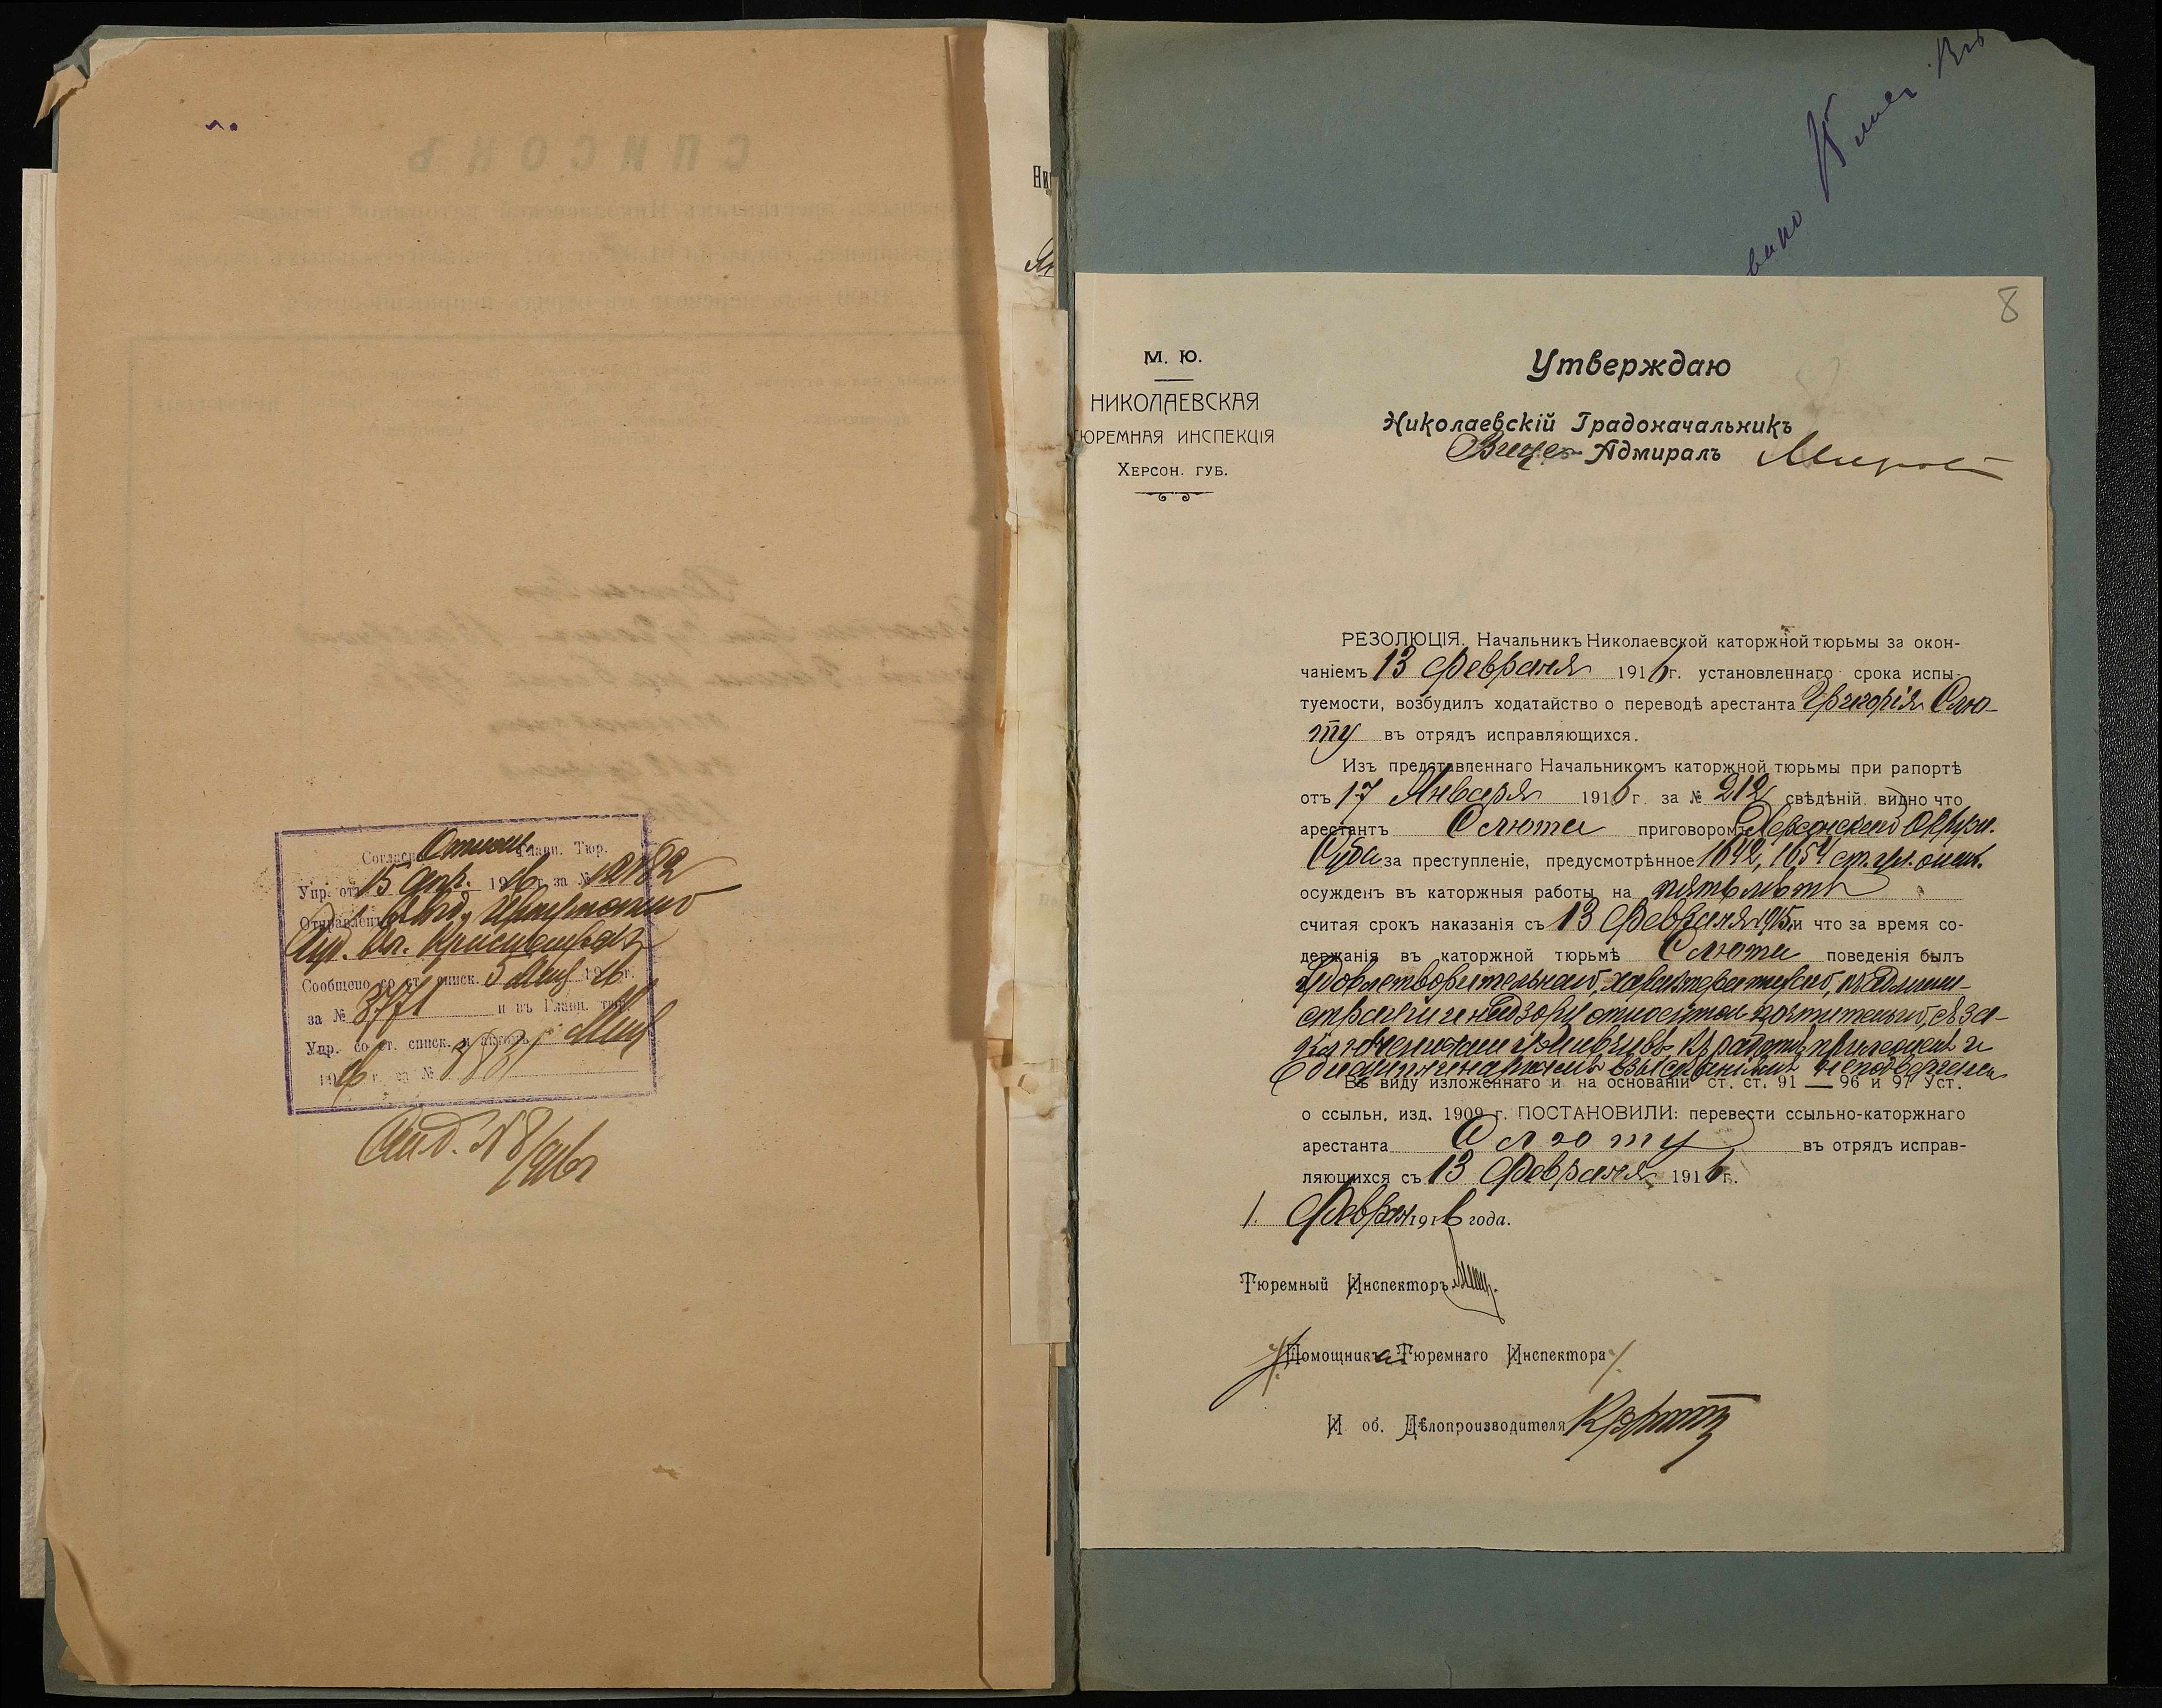 Согласно Отнош. Главн. Тюр.
Упр. от 15 Апр. 1916 г. за № 12182
Отправленъ
Сообщено со ст. списк. 5 1916 г.
за № 3771 и въ Главн. тюр.
Упр. со ст. списк. и
1916 г. за №
№ 8/916 г
8
М. Ю.
НИКОЛАЕВСКАЯ
ТЮРЕМНАЯ ИНСПЕКЦІЯ
ХЕРСОН. ГУБ.
Утверждаю
Николаевскій Градоначальникъ
Вице-Адмиралъ
РЕЗОЛЮЦІЯ. Начальникъ Николаевской каторжной тюрьмы за окон-
чаніемъ 13 Февраля 1916 г. установленнаго срока испы-
туемости, возбудилъ ходатайство о переводѣ арестанта Григорія Олю-
ту въ отрядъ исправляющихся.
Изъ представленнаго Начальникомъ каторжной тюрьмы при рапортѣ
отъ 17 Января 1916 г. за № 212 свѣдѣній видно что
арестантъ Олюта приговоромъ Херсонскаго Окружн.
Суда за преступленіе, предусмотрѣнное 1642, 1654 ст. Ул. о нак.
осужденъ въ каторжныя работы на пять лѣтъ
считая срокъ наказанія съ 13 Февраля 1915 и что за время со-
держанія въ каторжной тюрьмѣ Олюта поведенія былъ
удовлетворительнаго, къ админи-
страціи и надзору относится почтительно, съ за-
ключенными уживчивъ, къ работѣ прилеженъ и
дисциплинарнымъ взысканіямъ не подвергался
Въ виду изложеннаго и на основаніи ст. ст. 91 — 96 и 97 Уст.
о ссыльн, изд. 1909 г. ПОСТАНОВИЛИ: перевести ссыльно-каторжнаго
арестанта Олюту въ отрядъ исправ-
ляющихся съ 13 Февраля 1916 г.
1. Февраля 1916 года.
Тюремный Инспекторъ
Помощника Тюремнаго Инспектора
И об. Дѣлопроизводителя